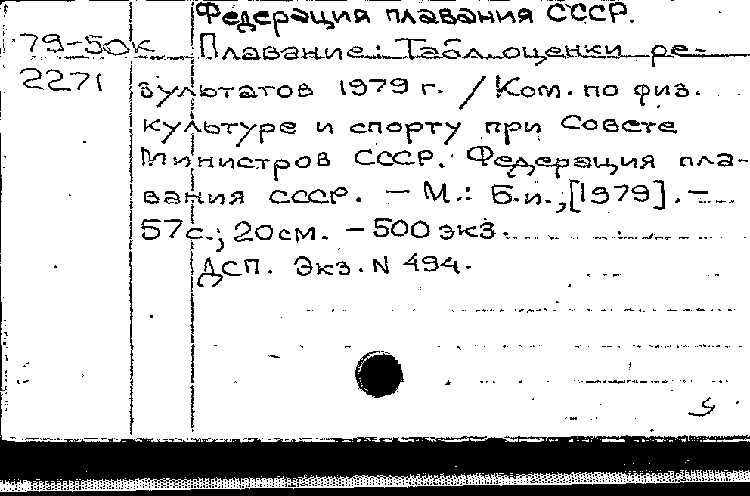 Федерация плавания СССР.
79-50к Плавание: Табл. оценки ре-
2271 зультатов 1979 г. / Ком. по физ.
культуре и спорту при Совете
Министров СССР. Федерация пла-
вания СССР. – М.: Б.и., [1979]. –
57с.; 20см. – 500 экз.
ДСП. Экз. N 494.